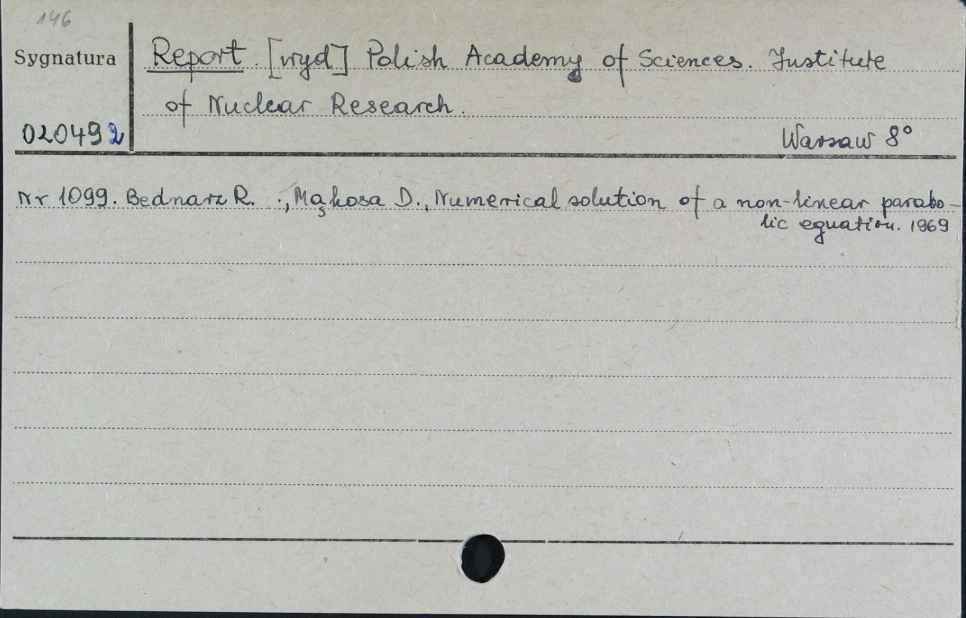 146
Sygnatura
Report. [wyd] Polish Academy of Sciences. Institute
of Nuclear Research.
020492
Warsaw 8°
Nr 1099. Bednarz R. ., Mąkosa D., Numerical solution of a non-linear parabo-
lic equation. 1969